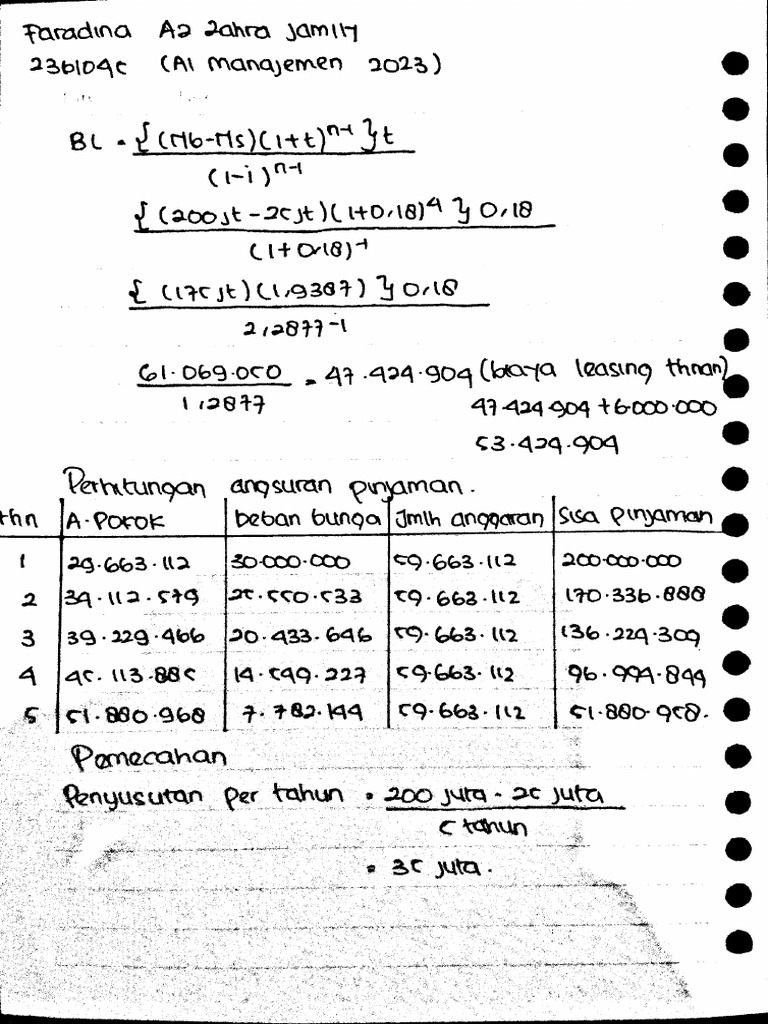 Faradina Az zahra Jamily
236104c (A1 Manajemen 2023)
BL = {(Mb-Ms)(1+t)ⁿ⁻¹}t
(1-i)ⁿ⁻¹
{(200jt - 25jt)(1+0,18)⁴} 0,18
(1+0,18)⁻¹
{(175jt)(1,9387)} 0,18
2,2877⁻¹
61.069.050 = 47.424.904 (biaya leasing thnan)
1,2877 47.424.904 + 6.000.000
53.424.904
Perhitungan angsuran pinjaman.
thn A. Pokok beban bunga Jmlh anggaran Sisa pinjaman
1 29.663.112 30.000.000 59.663.112 200.000.000
2 34.112.579 25.550.533 59.663.112 170.336.888
3 39.229.466 20.433.646 59.663.112 136.224.309
4 45.113.885 14.549.227 59.663.112 96.994.844
5 51.880.968 7.782.144 59.663.112 51.880.958.
Pemecahan
Penyusutan per tahun = 200 juta - 25 juta
5 tahun
= 35 juta.